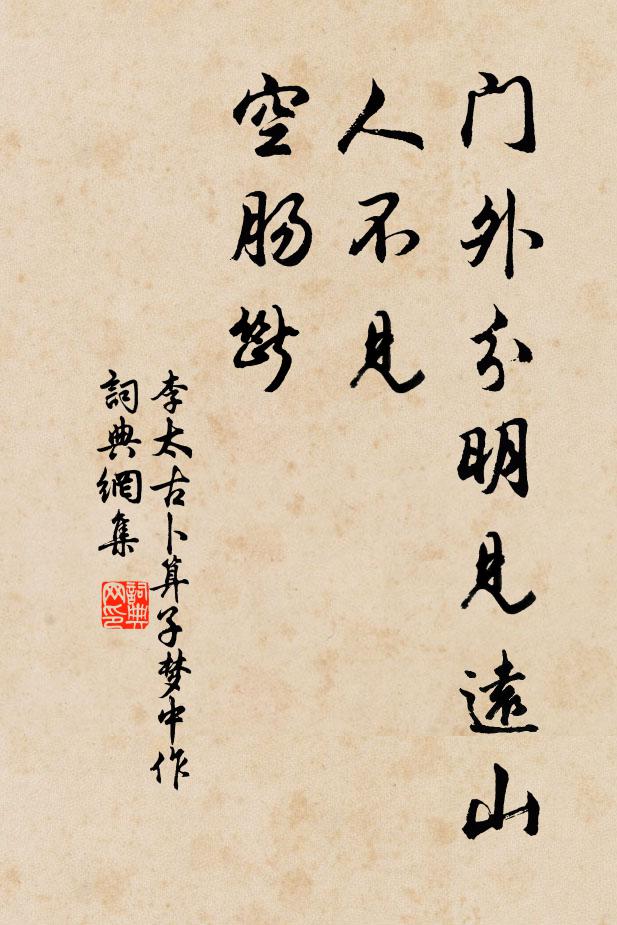 门外分明见遠山
人不见
空肠断
李太古卜算子梦中作
詞典網集
詞典
网印